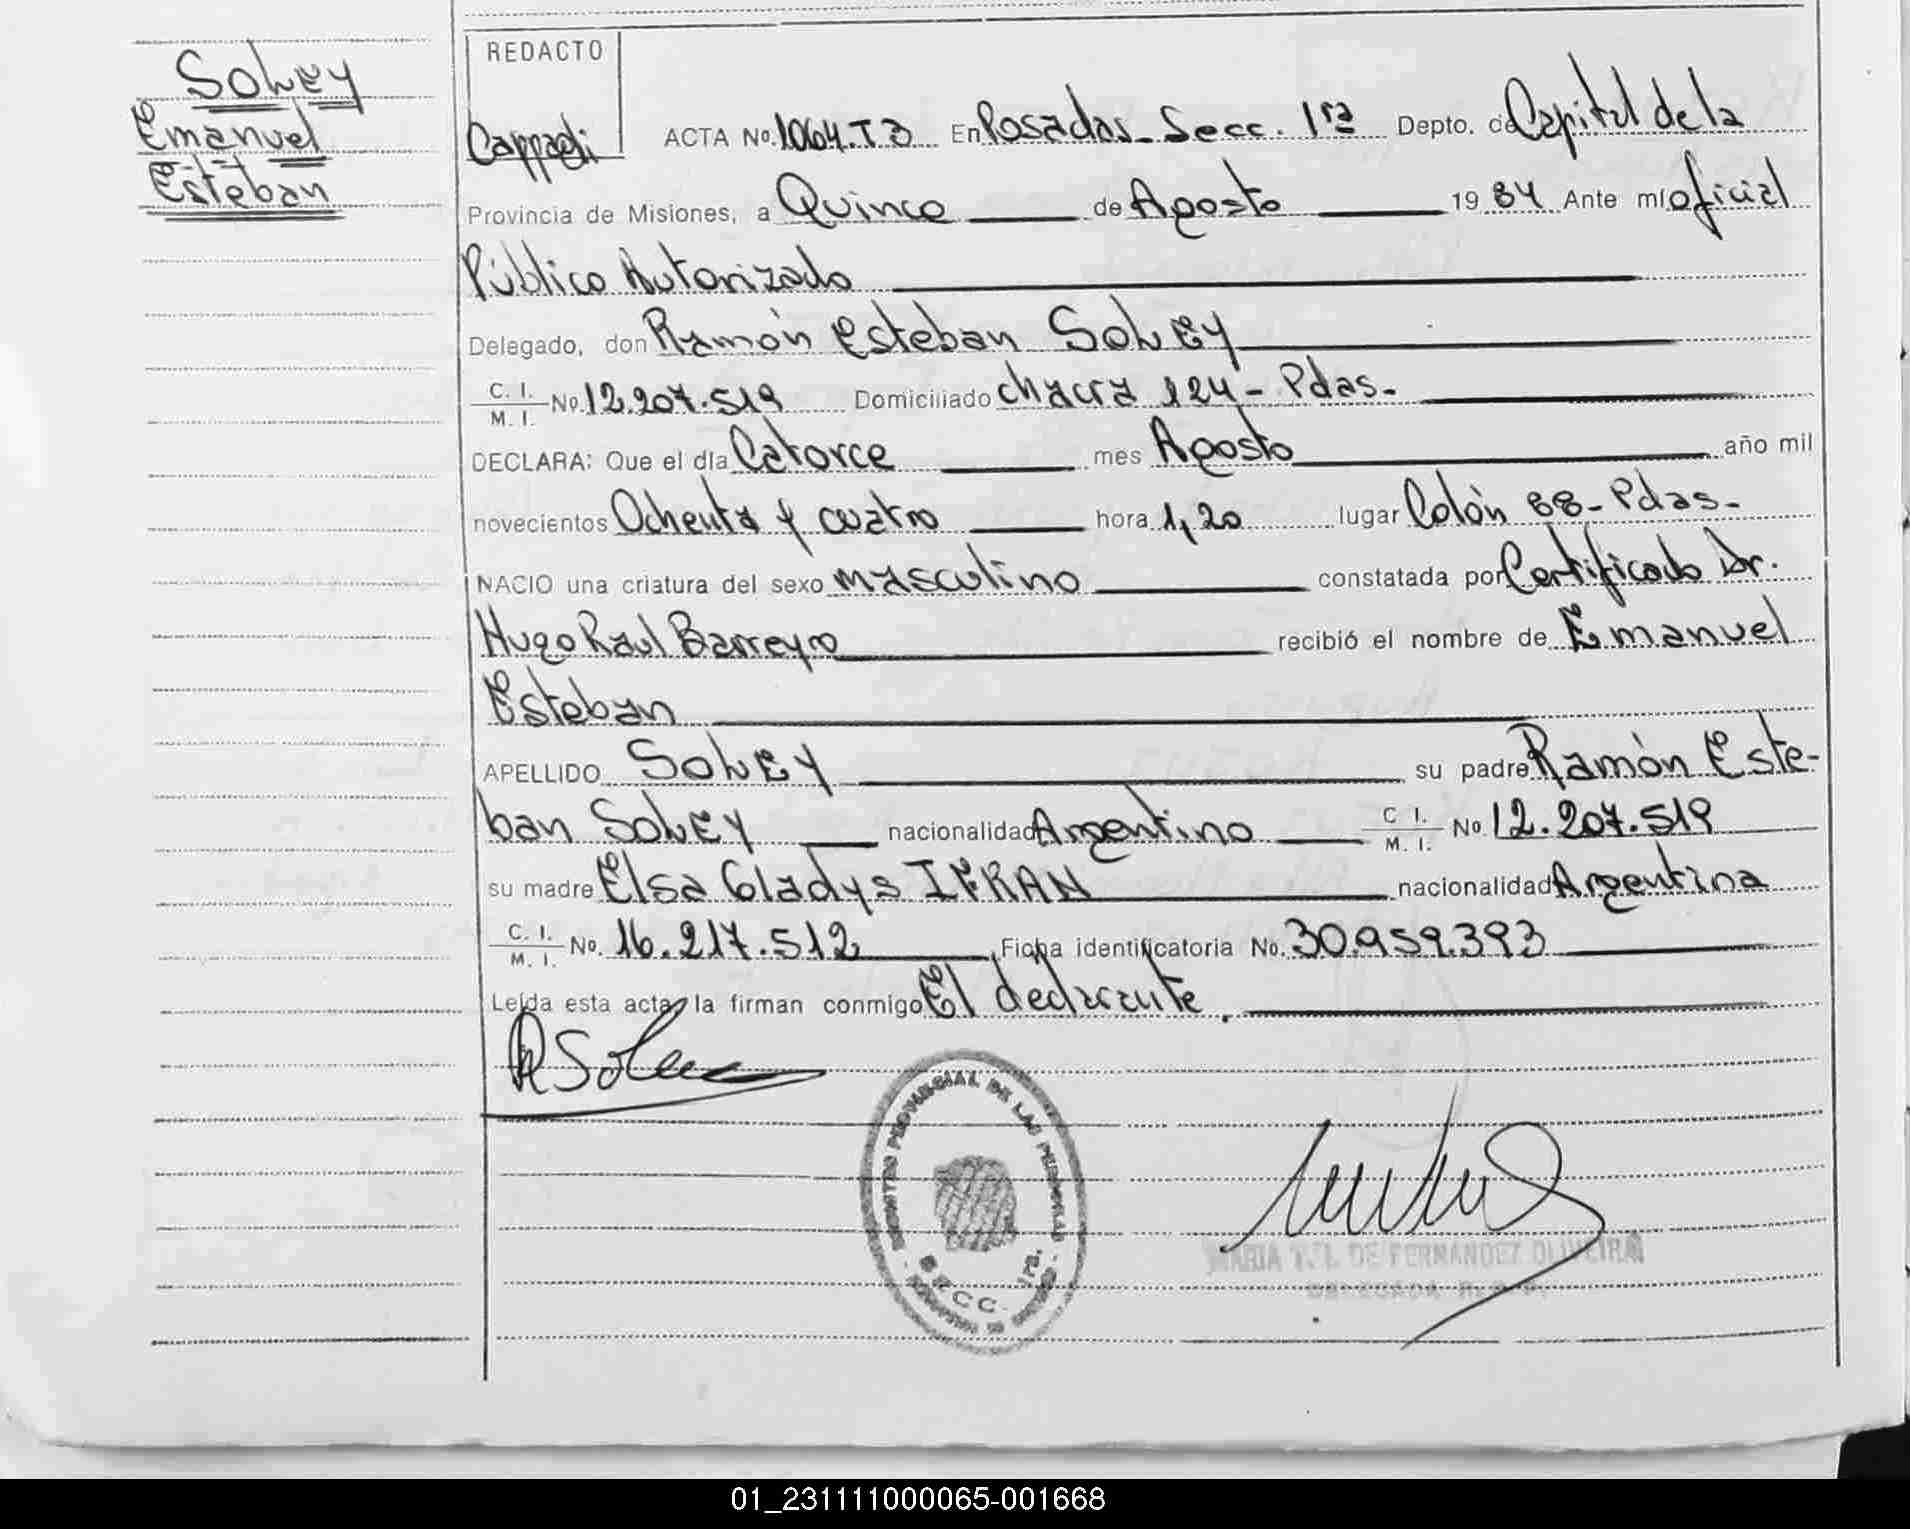 Soley
Emanuel
Esteban
REDACTO
ACTA No. 1064.T3 En Posadas - Secc. 1ra Depto. de Capital de la
Provincia de Misiones, a Quince de Agosto 1984 Ante mí oficial
Público Autorizado
Delegado, don Ramón Esteban Soley
C. I. / M. I. No. 12.207.519 Domiciliado chacra 124 - Pdas -
DECLARA: Que el día Catorce mes Agosto año mil
novecientos Ochenta y cuatro hora 1,20 lugar Colón 88 - Pdas -
NACIO una criatura del sexo masculino constatada por Certificado Dr.
Hugo Raul Barreyro recibió el nombre de Emanuel
Esteban
APELLIDO Soley su padre Ramón Este-
ban Soley nacionalidad Argentino C. I. / M. I. No. 12.207.519
su madre Elsa Gladys IFRAN nacionalidad Argentina
C. I. / M. I. No. 16.217.512 Ficha identificatoria No. 30.959.393
Leída esta acta, la firman conmigo El declarante.
PROVINCIAL DE LAS PERSONAS
SECC. 1ra.
MARIA T. I. DE FERNANDEZ OLIVEIRA
DELEGADA R. P. P.
01_231111000065-001668